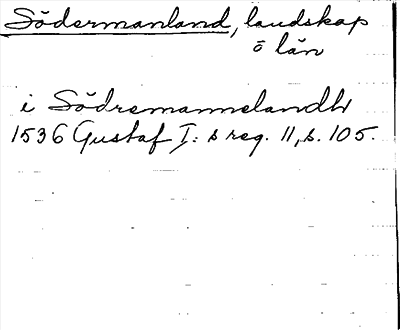 Södermanland, landskap
o län
i Södremannelandh
1536 Gustaf I:s reg. 11, s. 105.